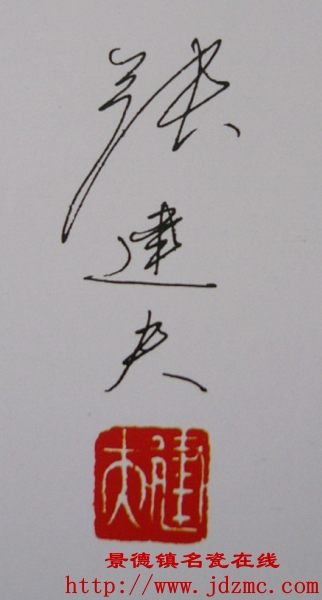 张
達
夫
景德镇名瓷在线
http://www.jdzmc.com